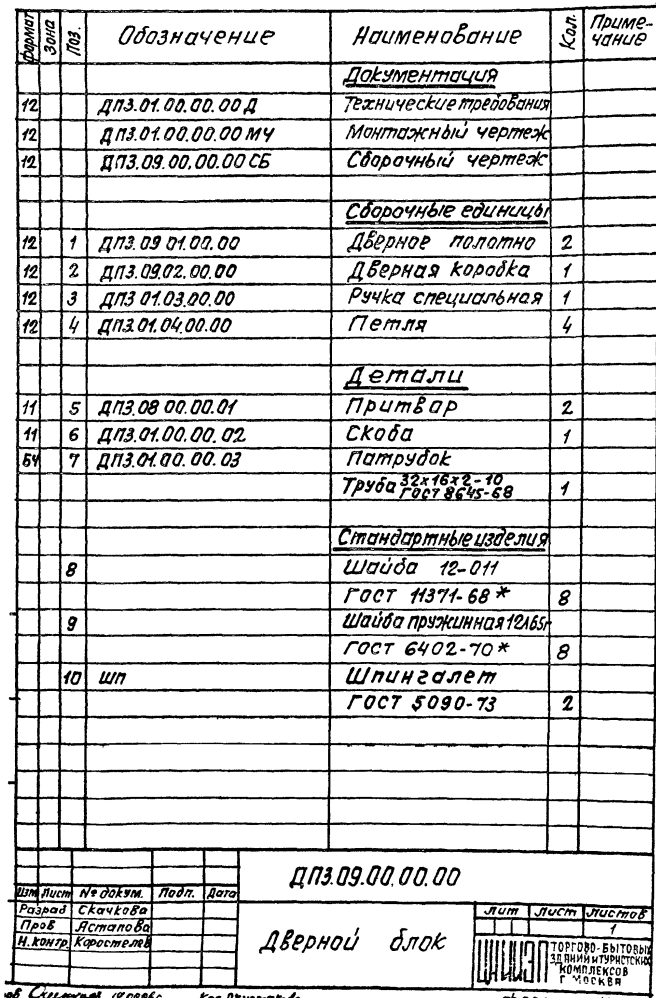 Формат Зона Поз. Обозначение Наименование Кол. Приме-
чание
Документация
12 ДПЗ.01.00.00.00 Д Технические требования
12 ДПЗ.01.00.00.00 МЧ Монтажный чертеж
12 ДПЗ.09.00.00.00 СБ Сборочный чертеж
Сборочные единицы
12 1 ДПЗ.09 01.00.00 Дверное полотно 2
12 2 ДПЗ.09.02.00.00 Дверная коробка 1
12 3 ДПЗ 01.03.00.00 Ручка специальная 1
12 4 ДПЗ.01.04.00.00 Петля 4
Детали
11 5 ДПЗ.08 00.00.01 Притвор 2
11 6 ДПЗ.01.00.00.02 Скоба 1
БЧ 7 ДПЗ.01.00.00.03 Патрубок
Труба 32х16х2-10
ГОСТ 8645-68 1
Стандартные изделия
8 Шайба 12-011
ГОСТ 11371-68 * 8
9 Шайба пружинная 12Л65г
ГОСТ 6402-70 * 8
10 шп Шпингалет
ГОСТ 5090-73 2
ДПЗ.09.00.00.00
Изм Лист № докум. Подп. Дата
Разраб Скачкова
Пров Астапова
Н.контр Коростелев
Дверной блок
Лит Лист Листов
1
ЦНИИЭП ТОРГОВО-БЫТОВЫХ
ЗДАНИЙ И ТУРИСТСКИХ
КОМПЛЕКСОВ
Г МОСКВА